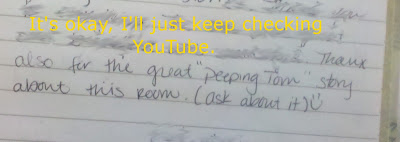 It's okay, I'll just keep checking
YouTube.
Thank
also for the great "peeping Tom" story
about this room. (ask about it)